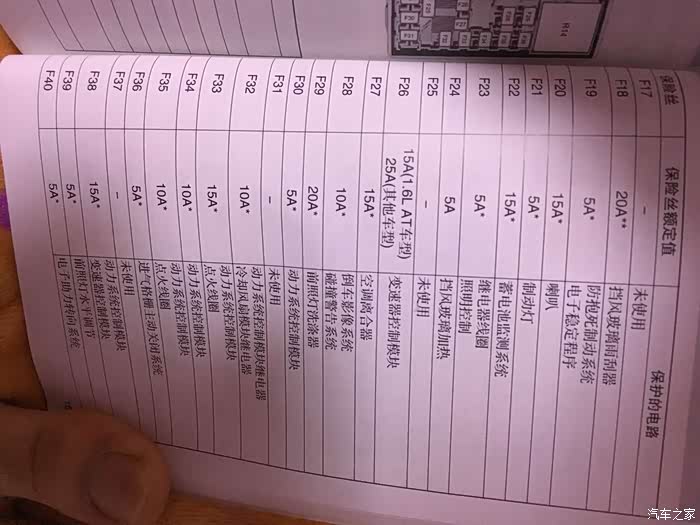 保险丝 保险丝额定值 保护的电路
F17 – 未使用
F18 20A** 挡风玻璃雨刮器
F19 5A* 防抱死制动系统
电子稳定程序
F20 15A* 喇叭
F21 5A* 制动灯
F22 15A* 蓄电池监测系统
F23 5A* 继电器线圈
照明控制
F24 5A 挡风玻璃加热
F25 – 未使用
F26 15A(1.6L AT车型)
25A(其他车型) 变速器控制模块
F27 15A* 空调离合器
F28 10A* 倒车影像系统
碰撞警告系统
F29 20A* 前照灯洗涤器
F30 5A* 动力系统控制模块
F31 – 未使用
F32 10A* 动力系统控制模块继电器
冷却风扇模块继电器
F33 15A* 动力系统控制模块
点火线圈
F34 10A* 动力系统控制模块
F35 10A* 点火线圈
进气格栅主动关闭系统
F36 5A* 未使用
F37 – 动力系统控制模块
F38 15A* 变速器控制模块
F39 5A* 前照灯水平调节
F40 5A* 电子助力转向系统
R14
汽车之家